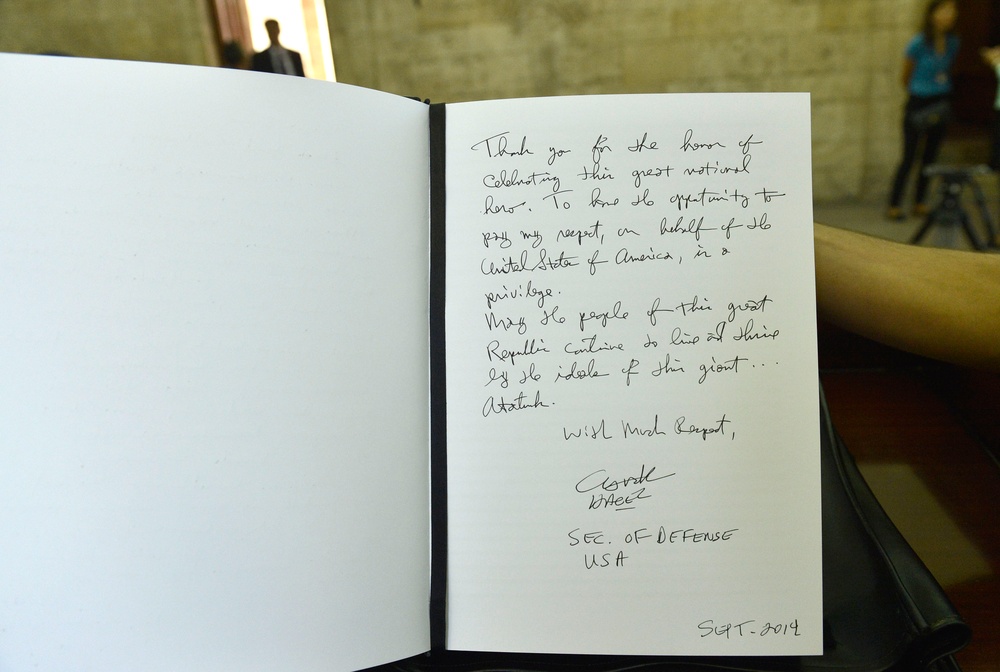 Thank you for the honor of
celebrating this great national
hero. To have the opportunity to
pay my respect, on behalf of the
United States of America, is a
privilege.
May the people of this great
Republic continue to live and thrive
by the ideals of this giant ...
Ataturk.
With Much Respect,
Chuck
HAGEL
SEC. OF DEFENSE
USA
SEPT - 2014